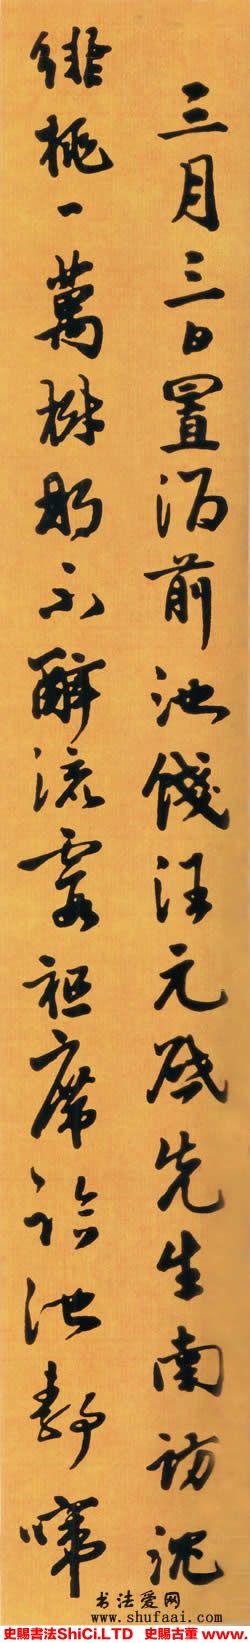 三月三日置酒前池餞汪元啟先生南訪沈
緋桃一萬株那不醉流霞祖席臨池靜啼
书法爱网
www.shufaai.com
史賜書法ShiCi.LTD 史賜古董www.ShiCi.LTD